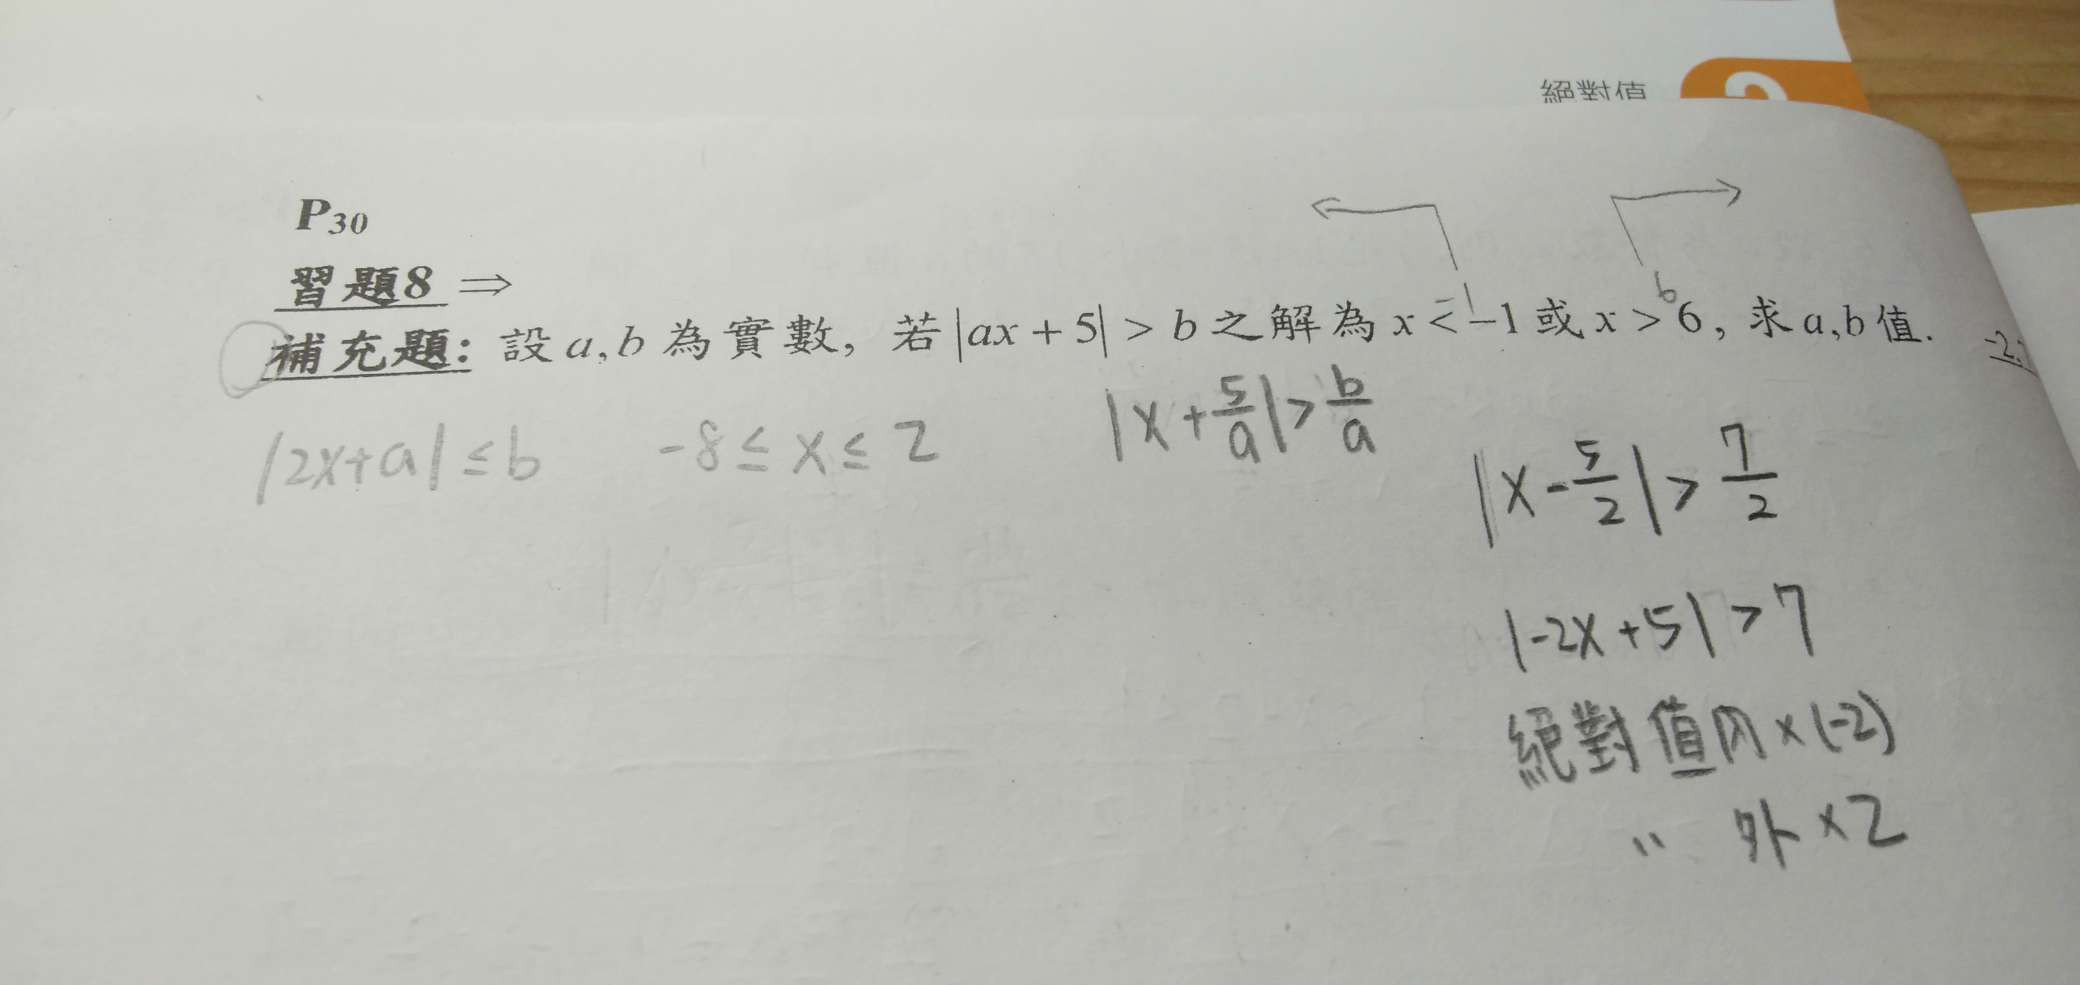 絕對值
P30
習題8 ⇒
-1 6
補充題: 設 a, b 為實數, 若 |ax + 5| > b 之解為 x < -1 或 x > 6, 求 a,b 值.
|2x+a| ≤ b -8 ≤ x ≤ 2 |x + 5/a| > b/a
|x - 5/2| > 7/2
|-2x+5| > 7
絕對值內 × (-2)
〃 外 × 2